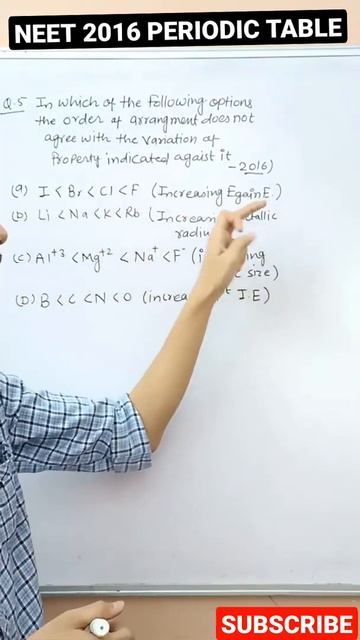 NEET 2016 PERIODIC TABLE
Q.5 In which of the following options
the order of arrangment does not
agree with the variation of
Property indicated agaist it
-2016)
(a) I < Br < Cl < F (Increasing EgainE.)
(b) Li < Na < K < Rb (Increa etallic
radiu
(C) Al+3 < Mg+2 < Na+ < F- (i ing
size)
(D) B < C < N < O (increa t I.E)
SUBSCRIBE